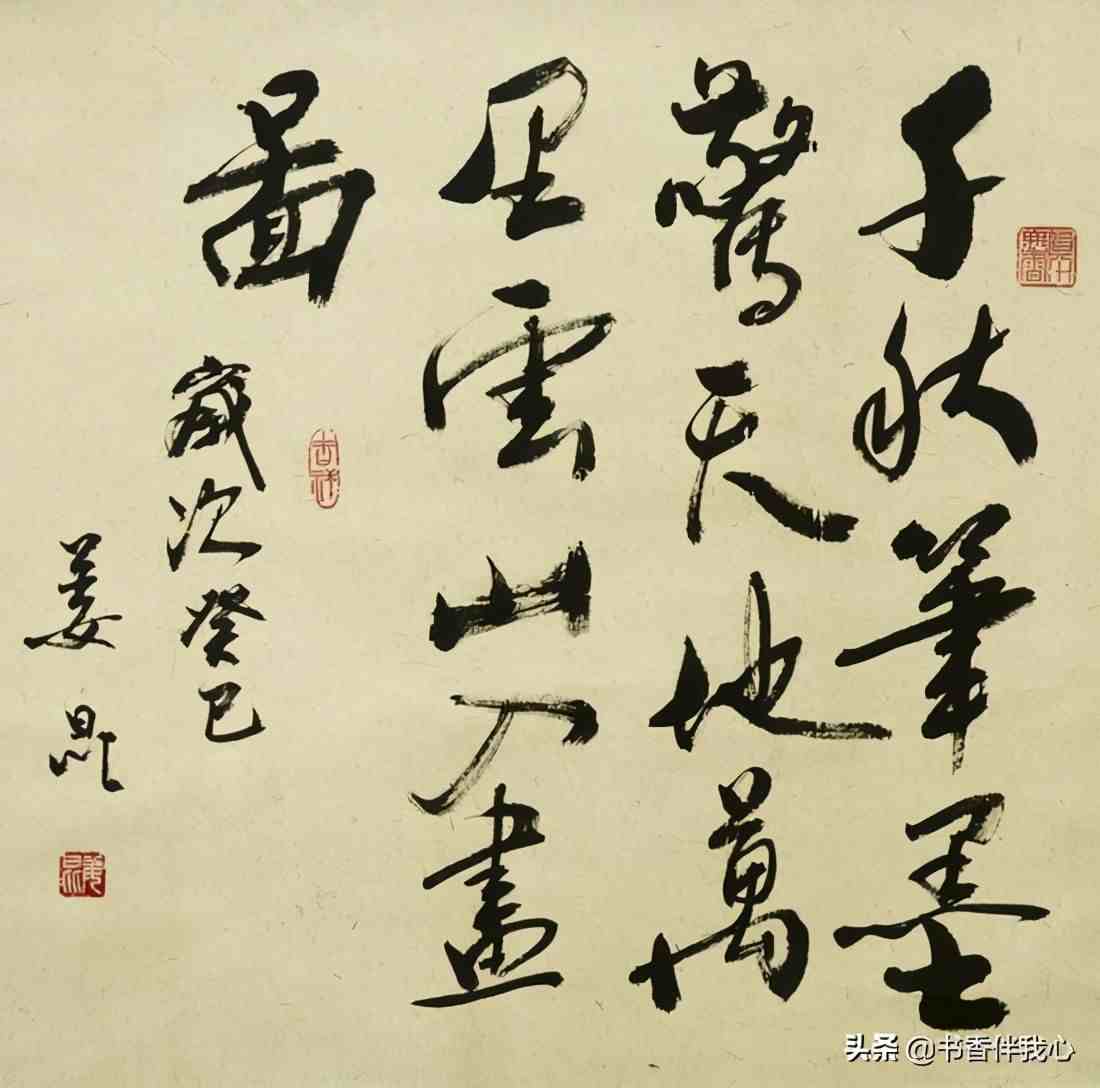 千秋筆墨
驚天地萬
里雲山入畫
圖
歲次癸巳
姜昆
头条 @书香伴我心